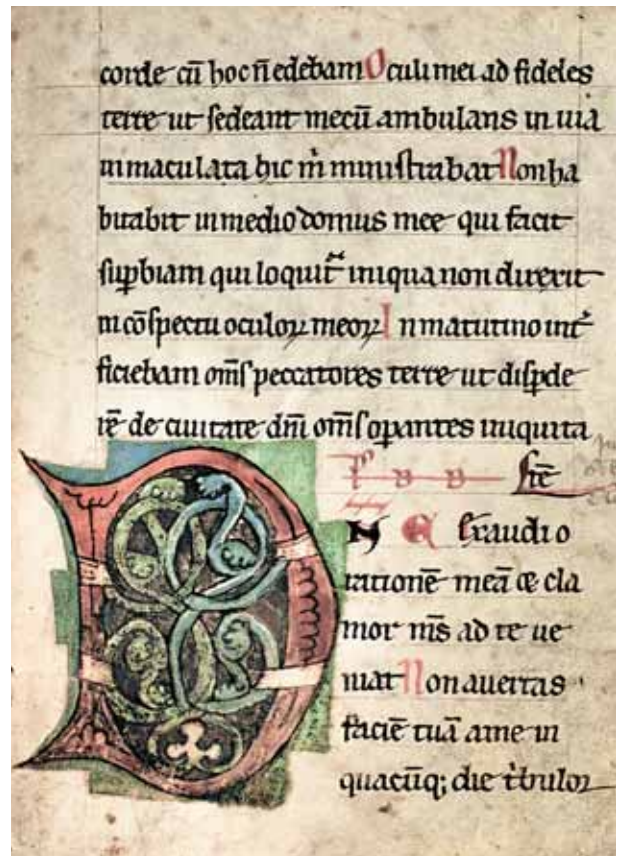 corde cū hoc n̄ edebam Oculi mei ad fideles
terre ut sedeant mecū ambulans in uia
inmaculata hic m̍ ministrabat Non ha
bitabit in medio domus mee qui facit
suꝑbiam qui loquit᷑ iniqua non direxit
in cōspectu oculoꝝ meoꝝ In matutino int᷑
ficiebam om̄s peccatores terre ut disꝑde
rē de ciuitate dn̄i om̄s oꝑantes iniquita
tē
D N E Exaudi o
rationē meā ⁊ cla
mor m̄s ad te ue
niat Non auertas
faciē tuā a me in
quacūq; die t̍bulor